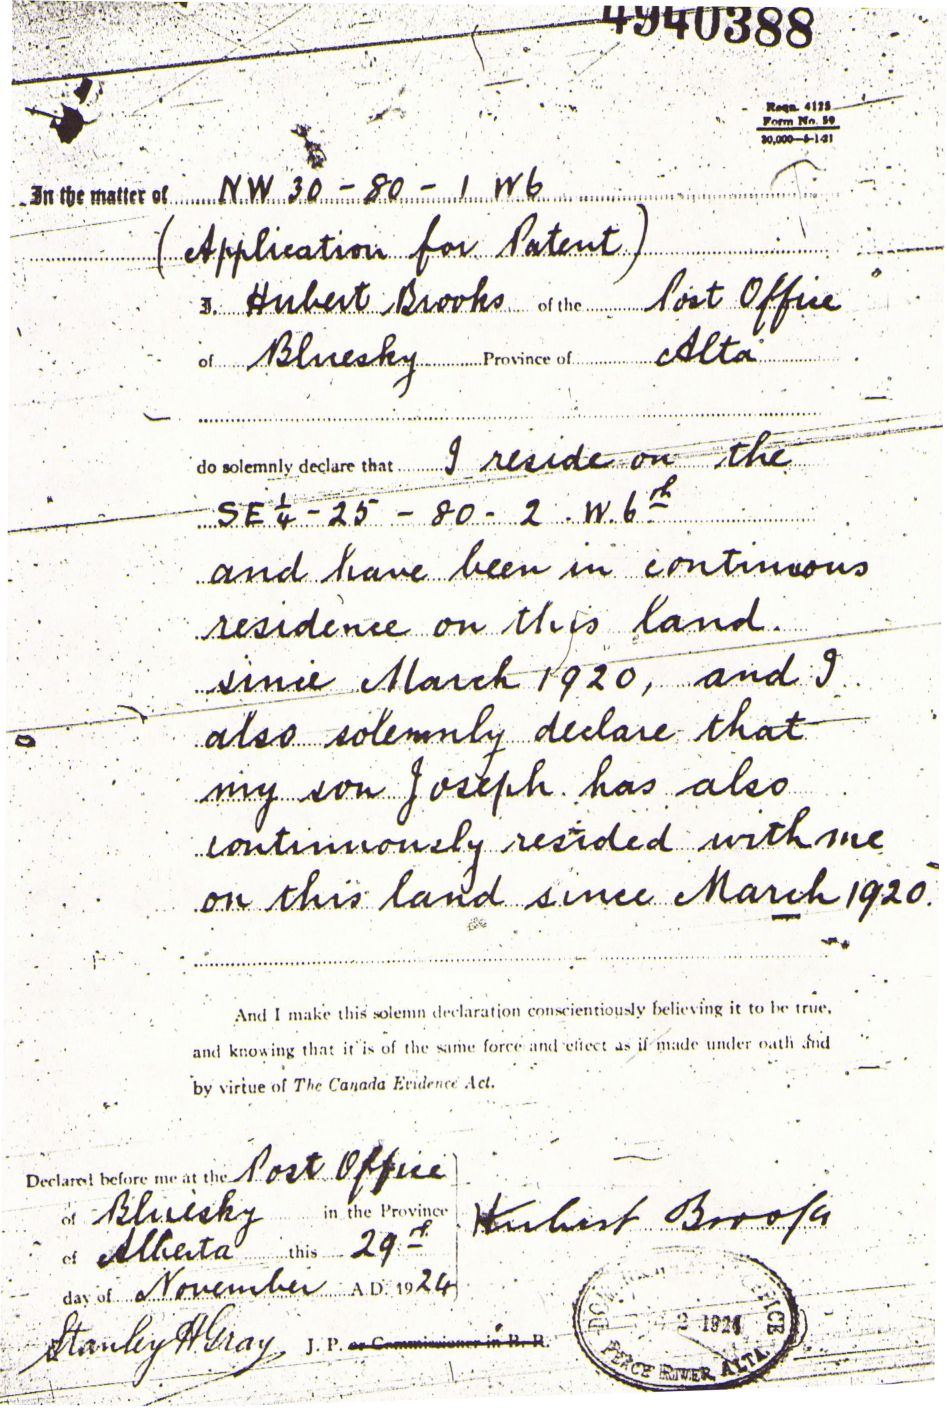 4940388
Reqn. 4125
Form No. 59
30,000—6-1-21
In the matter of NW 30 - 80 - 1 W6
(Application for Patent)
I, Hubert Brooks of the Post Office
of Bluesky Province of Alta
do solemnly declare that I reside on the
SE ¼ - 25 - 80 - 2 . W. 6th
and have been in continuous
residence on this land.
since March 1920, and I
also solemnly declare that
my son Joseph has also
continuously resided with me
on this land since March 1920.
And I make this solemn declaration conscientiously believing it to be true,
and knowing that it is of the same force and effect as if made under oath and
by virtue of The Canada Evidence Act.
Declared before me at the Post Office
of Bluesky in the Province
of Alberta this 29th
day of November A.D. 1924
Hubert Brooks
Stanley H Gray J. P. or Commissioner in B. R.
OFFICE
2 1924
PEACE RIVER, ALTA.